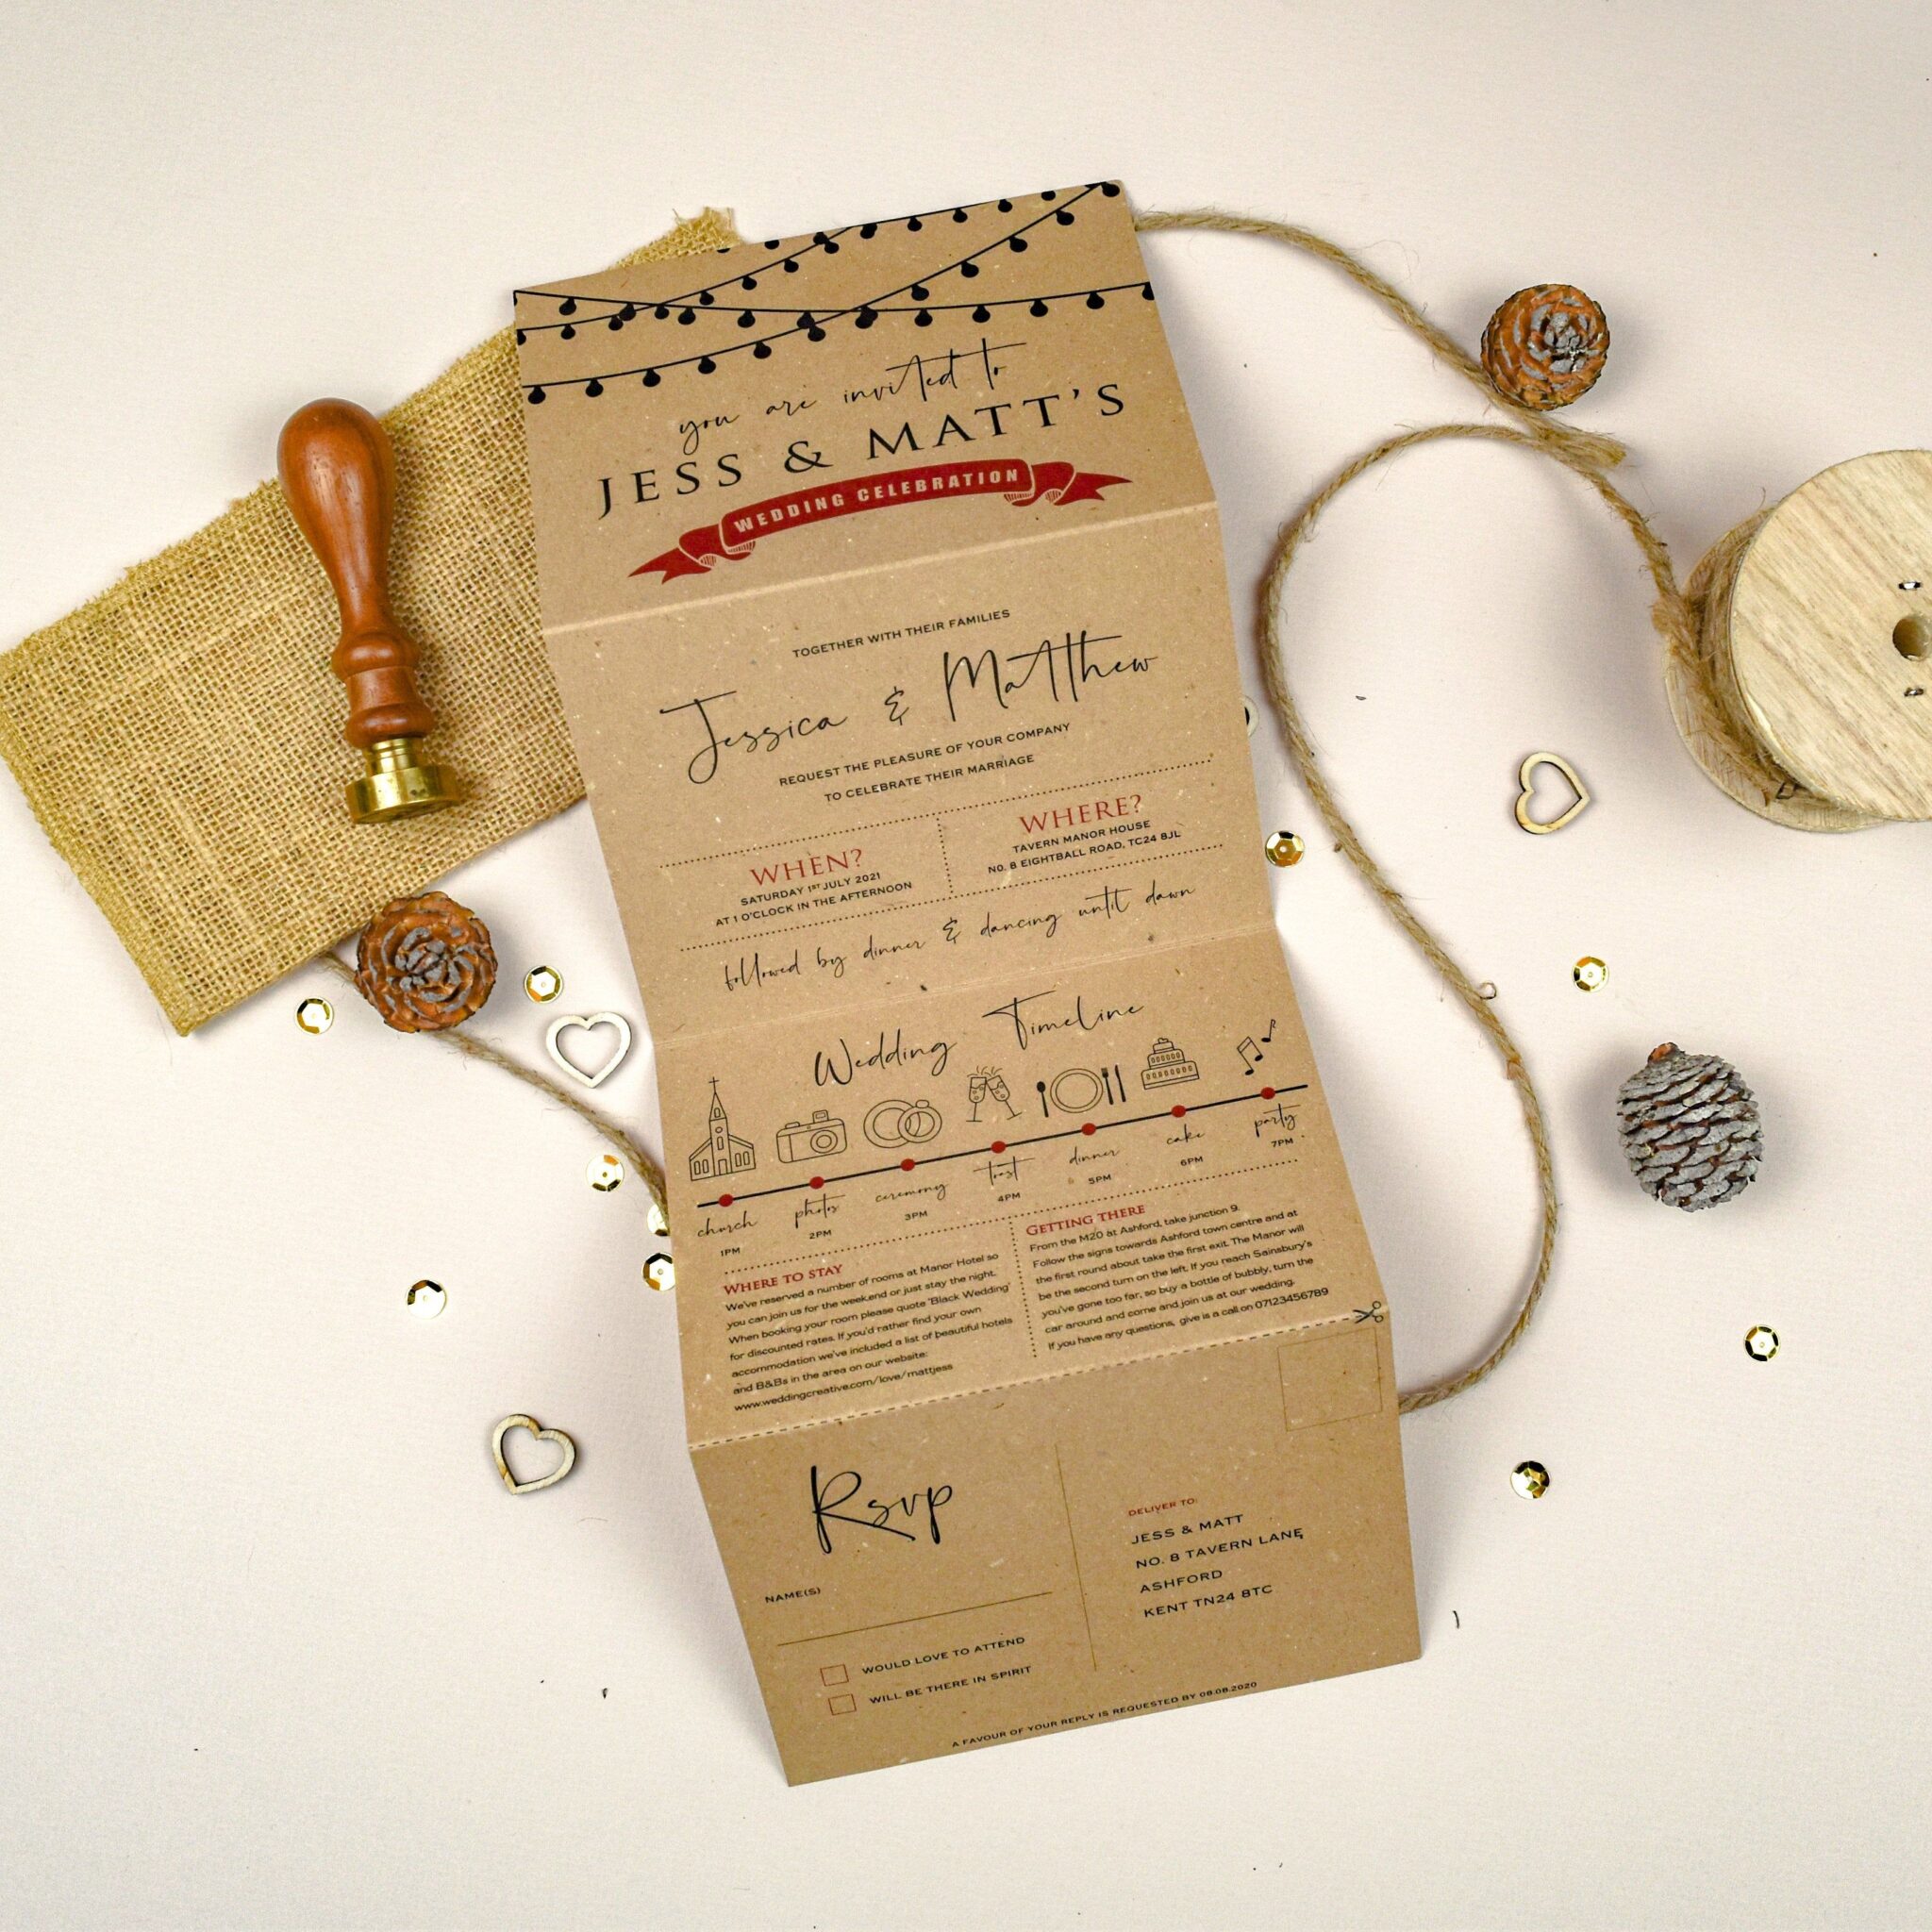 you are invited to
JESS & MATT'S
WEDDING CELEBRATION
TOGETHER WITH THEIR FAMILIES
Jessica & Matthew
REQUEST THE PLEASURE OF YOUR COMPANY
TO CELEBRATE THEIR MARRIAGE
WHEN?
SATURDAY 1ST JULY 2021
AT 1 O'CLOCK IN THE AFTERNOON
WHERE?
TAVERN MANOR HOUSE
NO. 8 EIGHTBALL ROAD, TC24 8JL
followed by dinner & dancing until dawn
Wedding Timeline
church
1PM
photos
2PM
ceremony
3PM
toast
4PM
dinner
5PM
cake
6PM
party
7PM
WHERE TO STAY
We've reserved a number of rooms at Manor Hotel so
you can join us for the weekend or just stay the night.
When booking your room please quote 'Black Wedding'
for discounted rates. If you'd rather find your own
accommodation we've included a list of beautiful hotels
and B&Bs in the area on our website:
www.weddingcreative.com/love/mattjess
GETTING THERE
From the M20 at Ashford, take junction 9.
Follow the signs towards Ashford town centre and at
the first round about take the first exit. The Manor will
be the second turn on the left. If you reach Sainsbury's
you've gone too far, so buy a bottle of bubbly, turn the
car around and come and join us at our wedding.
If you have any questions, give is a call on 07123456789
Rsvp
NAME(S)
WOULD LOVE TO ATTEND
WILL BE THERE IN SPIRIT
DELIVER TO:
JESS & MATT
NO. 8 TAVERN LANE,
ASHFORD
KENT TN24 8TC
A FAVOUR OF YOUR REPLY IS REQUESTED BY 08.08.2020